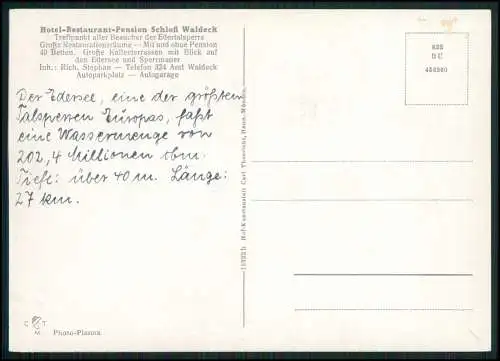 Hotel-Restaurant-Pension Schloß Waldeck
Treffpunkt aller Besucher der Edertalsperre
Große Restaurationsräume — Mit und ohne Pension
40 Betten. Große Kaffeeterrassen mit Blick auf
den Edersee und Sperrmauer
Inh.: Rich. Stephan — Telefon 324 Amt Waldeck
Autoparkplatz — Autogarage
Der Edersee, eine der größten
Talsperren Europas, faßt
eine Wassermenge von
202,4 Millionen cbm.
Tiefe: über 40 m. Länge:
27 km.
Hof-Kunstanstalt Carl Thoericht, Hann. Münden
C T
M
Photo-Plasma